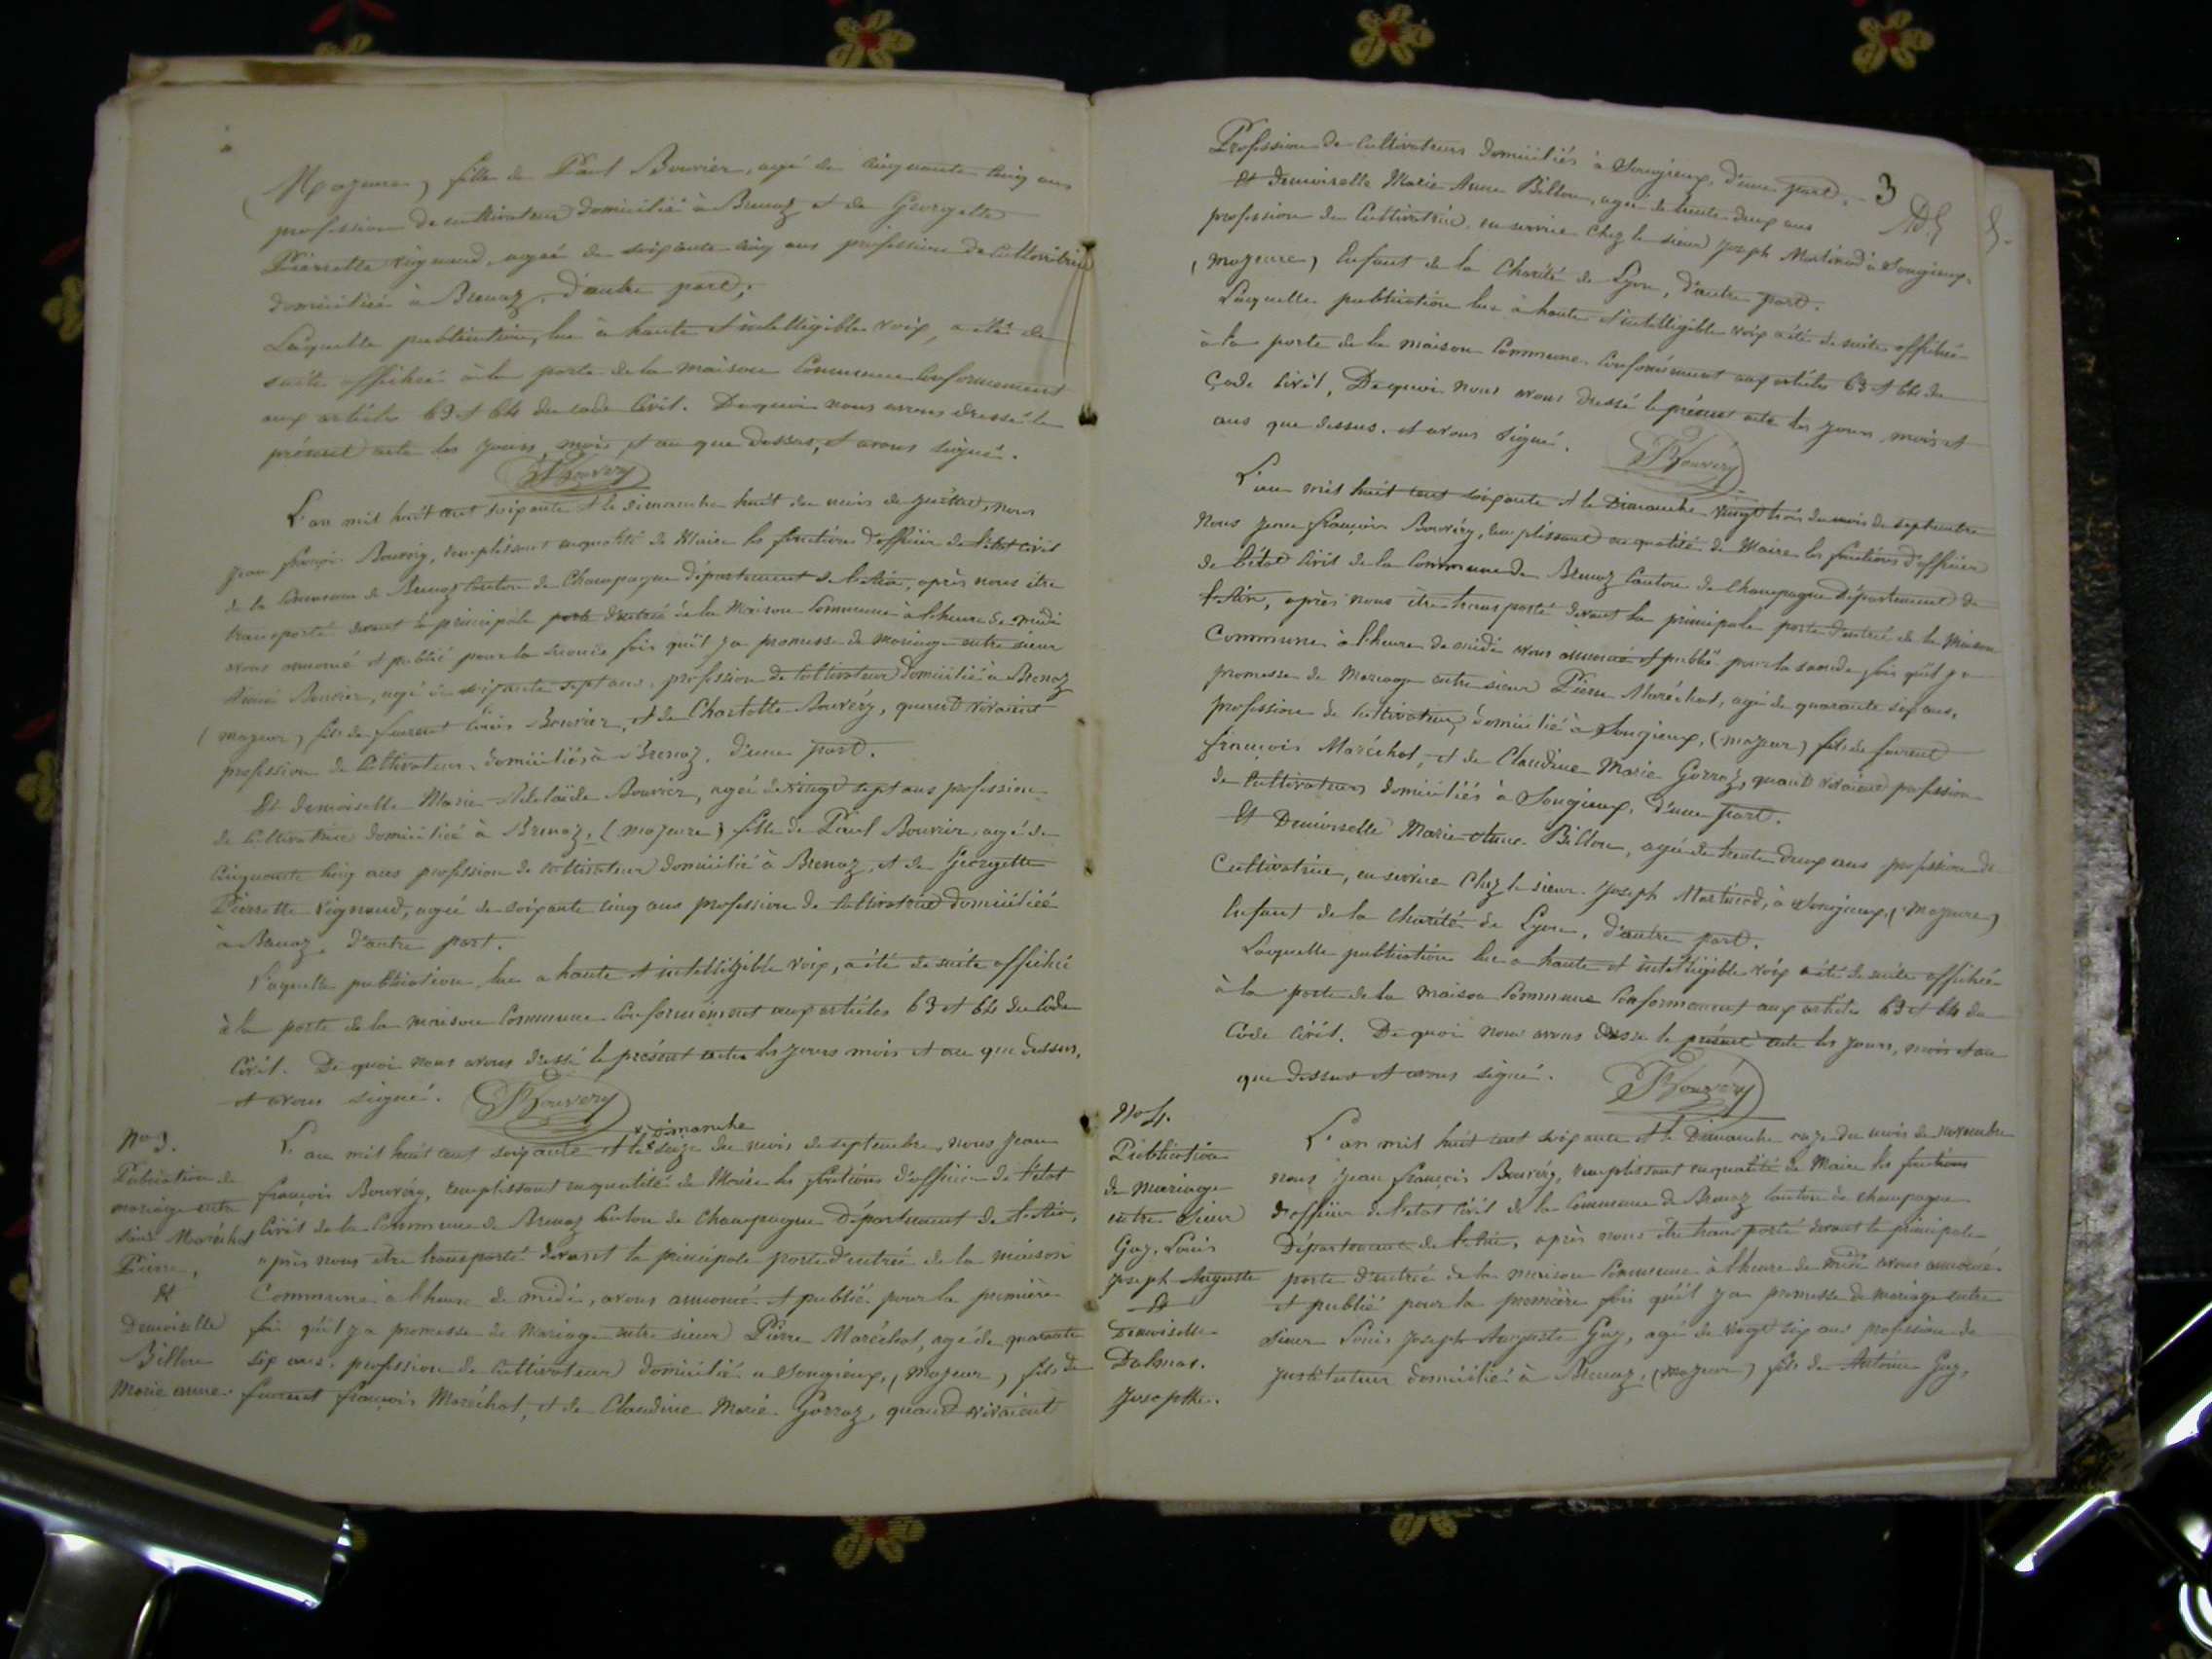 (Majeure) fille de Paul Bouvier, agé de cinquante cinq ans
profession de cultivateur domicilié à Brenaz et de Georgette
Pierrette Vignaud, agée de soixante cinq ans profession de Cultivatrice
domiciliée à Brenaz, d'autre part;
Laquelle publication, lue à haute et intelligible voix, a été de
suite affichée à la porte de la maison Commune Conformement
aux articles 63 et 64 du code Civil. De quoi nous avons dressé le
présent acte les jours, mois et an que dessus, et avons signé.
Bouvéry
L'an mil huit cent soixante et le dimanche huit du mois de juillet, nous
Jean françois Bouvéry, remplissant en qualité de Maire les fonctions d'officier de l'état civil
de la Commune de Brenaz Canton de Champagne département de l'Ain, après nous être
transporté devant la principale porte d'entrée de la Maison Commune à l'heure de midi
avons annoncé et publié pour la seconde fois qu'il y a promesse de mariage entre sieur
Bouvier, agé de soixante sept ans, profession de Cultivateur domicilié à Brenaz
(majeur) fils de feurent Louis Bouvier, et de Charlotte Bouvéry, quand vivaient
profession de Cultivateurs domiciliés à Brenaz, d'une part.
Et demoiselle Marie Adelaïde Bouvier, agée de vingt sept ans profession
de Cultivatrice domiciliée à Brenaz, (majeure) fille de Paul Bouvier, agé de
Cinquante Cinq ans profession de Cultivateur domicilié à Brenaz, et de Georgette
Pierrette Vignaud, agée de soixante cinq ans profession de Cultivatrice domiciliée
à Brenaz, d'autre part.
Laquelle publication, lue a haute et intelligible voix, a été de suite affichée
à la porte de la maison Commune Conformément aux articles 63 et 64 du Code
Civil. De quoi nous avons dressé le présent acte les jours mois et an que dessus,
et avons signé. Bouvéry
No 3.
Publication de
mariage entre
Sieur Maréchal
Pierre,
Et
Demoiselle
Billon
Marie anne.
x Dimanche
L'an mil huit cent soixante et le x seize du mois de septembre, nous Jean
françois Bouvéry, remplissant en qualité de Maire les fonctions d'officier de l'état
Civil de la Commune de Brenaz Canton de Champagne Département de l'Ain,
après nous être transporté devant la principale porte d'entrée de la maison
Commune à l'heure de midi, avons annoncé et publié pour la première
fois qu'il y a promesse de Mariage entre sieur Pierre Maréchal, agé de quarante
six ans, profession de Cultivateur domicilié a Songieux, (Majeur) fils de
feurent françois Maréchal, et de Claudine Marie Gorraz, quand vivaient
3
Profession de Cultivateurs domiciliés à Songieux, d'une part.
Et demoiselle Marie Anne Billon, agée de trente deux ans
profession de Cultivatrice, en service chez le sieur Joseph Martinod à Songieux,
(majeure) Enfant de la Charité de Lyon, d'autre part.
Laquelle publication lue à haute et intelligible voix a été de suite affichée
à la porte de la maison Commune Conformément aux articles 63 et 64 du
Code Civil, De quoi nous avons dressé le présent acte les jours, mois et
ans que dessus, et avons signé. Bouvéry
L'an mil huit cent soixante et le Dimanche vingt trois du mois de septembre
Nous Jean françois Bouvéry, remplissant en qualité de Maire les fonctions d'officier
de l'état Civil de la Commune de Brenaz Canton de Champagne Département de
l'Ain, après nous être transporté devant la principale porte d'entrée de la Maison
Commune à l'heure de midi avons annoncé et publié pour la seconde fois qu'il y a
promesse de Mariage entre sieur Pierre Maréchal, agé de quarante six ans,
profession de Cultivateur, domicilié à Songieux, (majeur) fils de feurent
françois Maréchal, et de Claudine Marie Gorraz, quand vivaient profession
de Cultivateurs domiciliés à Songieux, d'une part.
Et Demoiselle Marie Anne Billon, agée de trente deux ans profession de
Cultivatrice, en service chez le sieur Joseph Martinod, à Songieux, (Majeure)
Enfant de la Charité de Lyon, d'autre part.
Laquelle publication lue a haute et intelligible voix a été de suite affichée
à la porte de la maison Commune Conformement aux articles 63 et 64 du
Code Civil. De quoi nous avons dressé le présent acte les jours, mois et an
que dessus et avons signé. Bouvéry
No 4.
Publication
de mariage
entre Sieur
Guy, Louis
Joseph Auguste
Et
Demoiselle
Dalmas.
Josephte.
L'an mil huit cent soixante et le Dimanche onze du mois de novembre
nous Jean françois Bouvéry, remplissant en qualité de Maire les fonctions
d'officier de l'etat Civil de la Commune de Brenaz Canton de champagne
Département de l'Ain, après nous être transporté devant la principale
porte d'entrée de la maison Commune à l'heure de midi avons annoncé
et publié pour la première fois qu'il y a promesse de mariage entre
Sieur Louis Joseph Auguste Guy, agé de vingt six ans profession de
Instituteur domicilié à Brenaz, (majeur) fils de Antoine Guy,